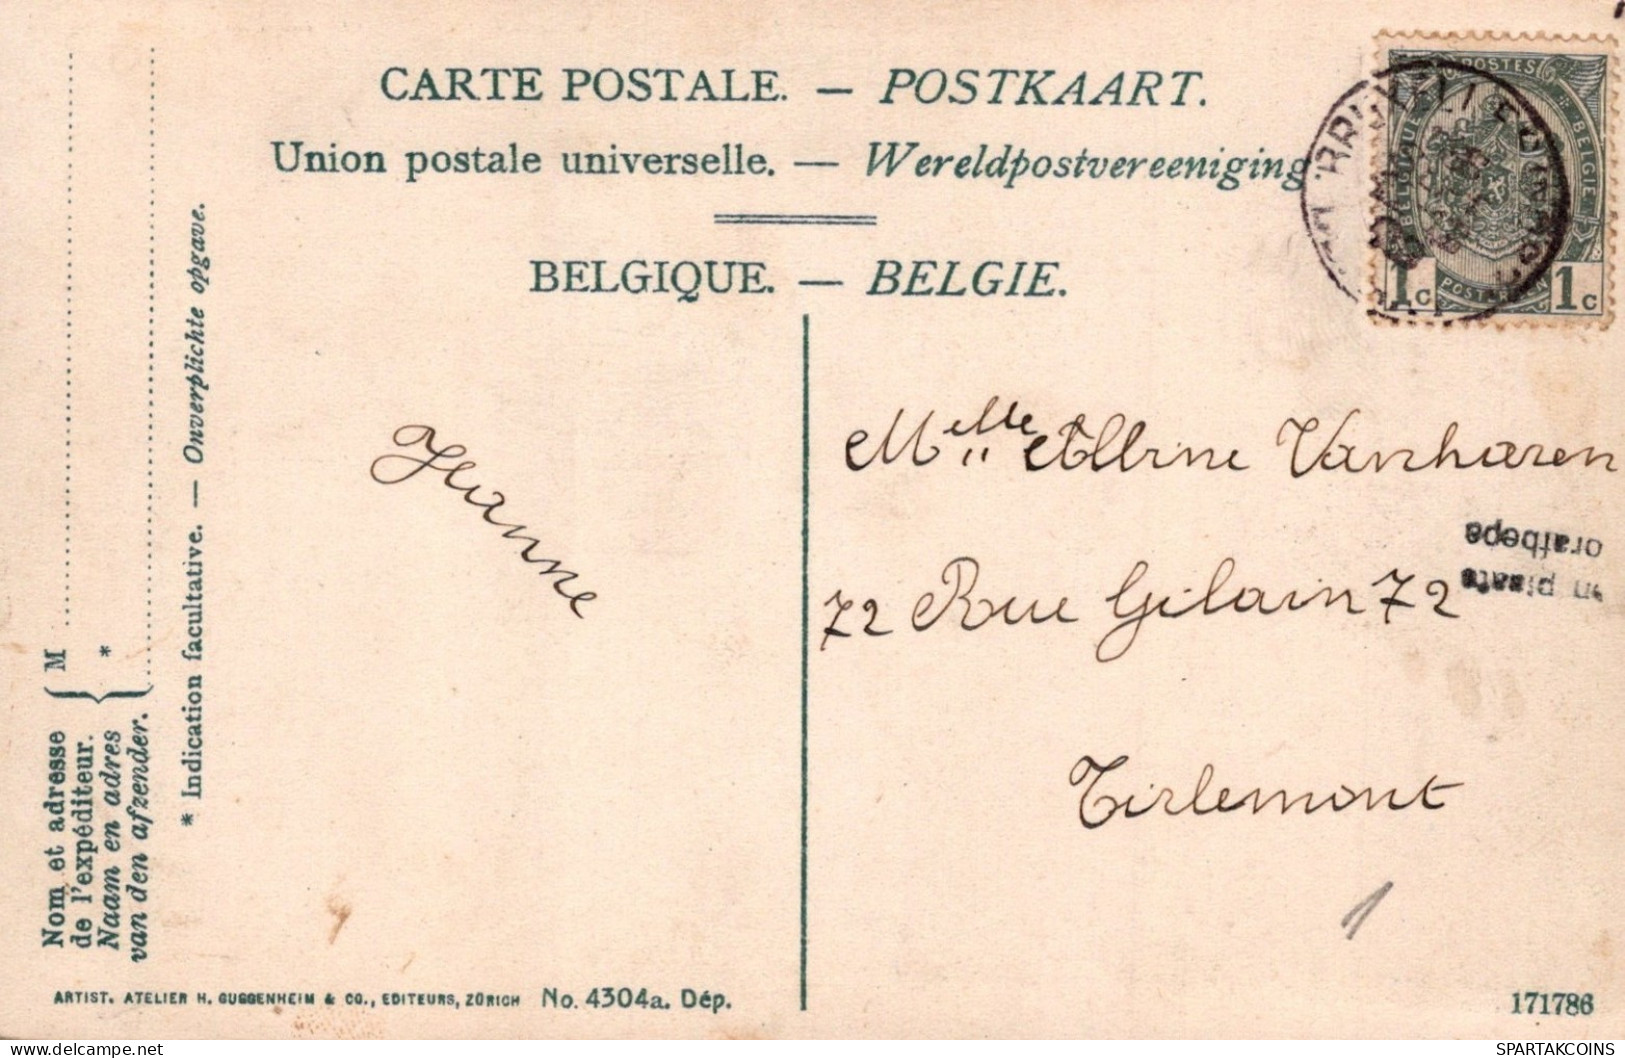 CARTE POSTALE. — POSTKAART.
Union postale universelle. — Wereldpostvereeniging
BELGIQUE. — BELGIE.
POSTES
BELGIQUE
BELGIE
1c 1c
Nom et adresse
de l'expéditeur.
Naam en adres
van den afzender.
M
*
* Indication facultative. — Onverplichte opgave.
Jeanne
Melle Vanhaeren
72 Rue Gilain 72
Tirlemont
1
ARTIST. ATELIER H. GUGGENHEIM & CO., EDITEURS, ZÜRICH No. 4304a. Dép.
171786
SPARTAKCOINS